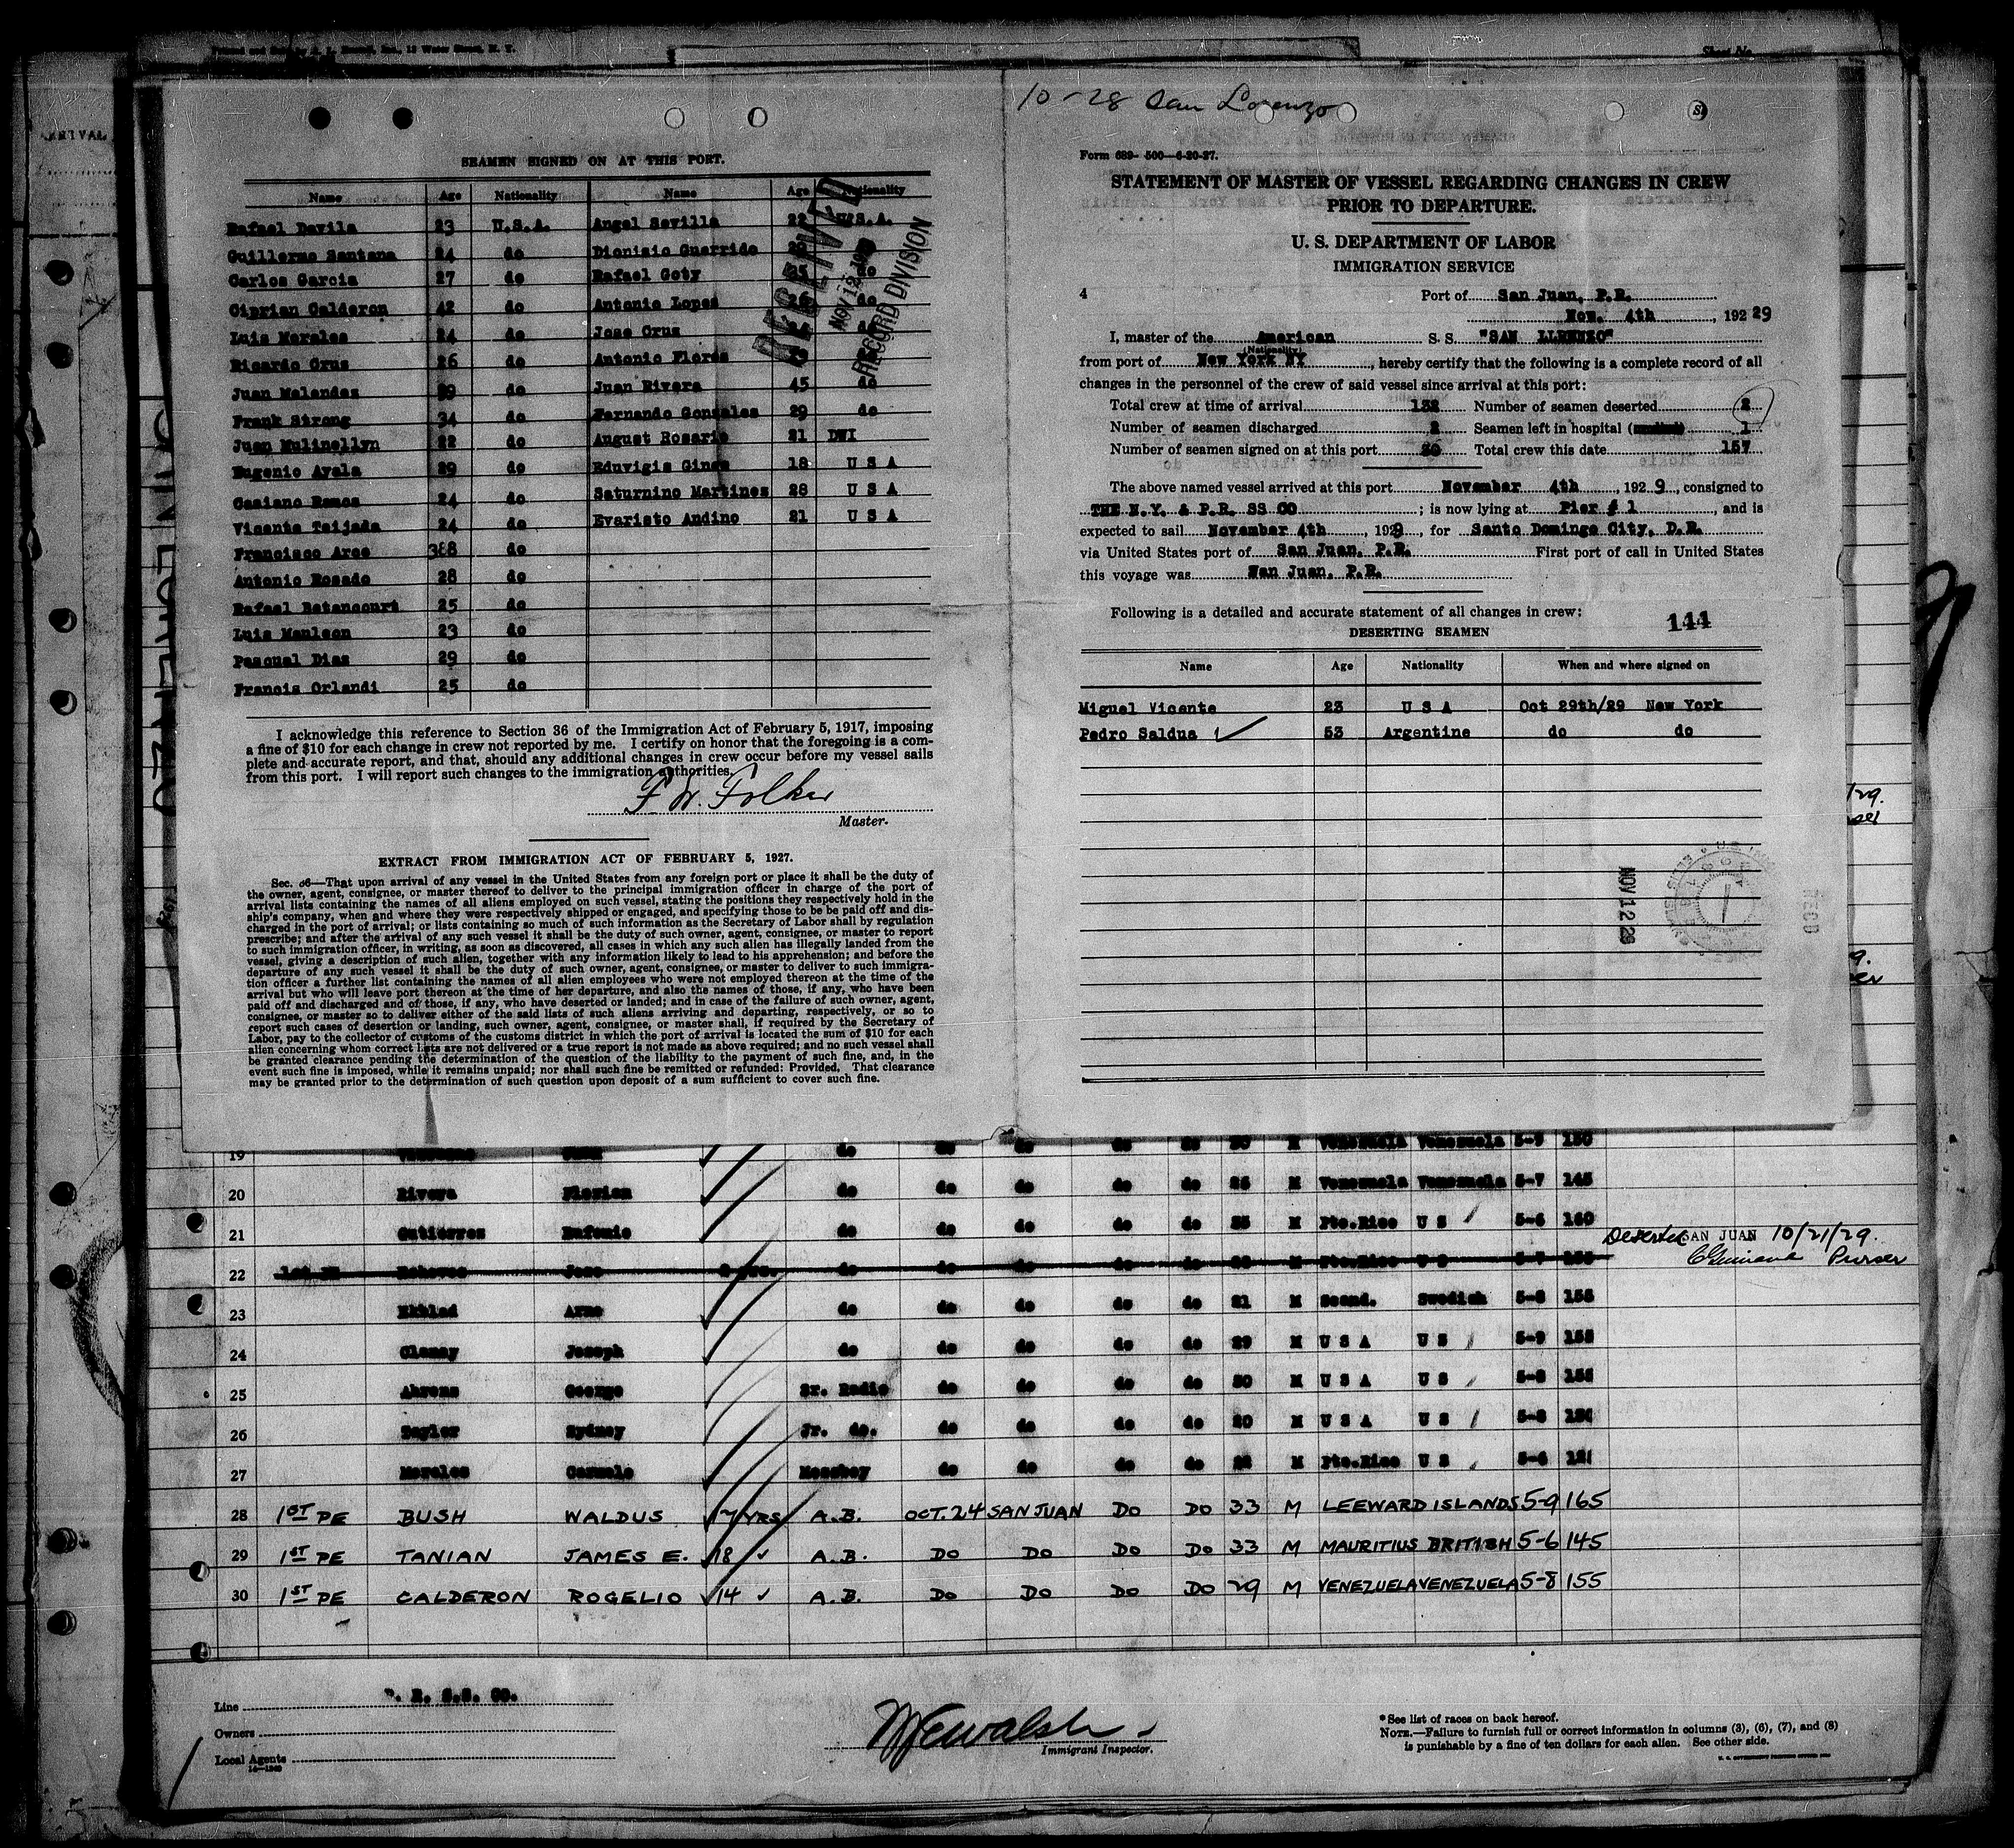 10-28 San Lorenzo
SEAMEN SIGNED ON AT THIS PORT.
Name Age Nationality Name Age Nationality
Rafael Davila 23 U.S.A. Angel Sevilla 22 U.S.A.
Guillermo Santana 24 do Dionisio Guerrido
Carlos Garcia 27 do Rafael Goty 25 do
Ciprian Calderon 42 do Antonio Lopes 26 do
Luis Morales 24 do Jose Crus do
Ricardo Crus 26 do Antonio Flores
Juan Melendes 39 do Juan Rivera 45 do
Frank Strong 34 do Fernando Gonzales 29 do
Juan Mulinellyn 22 do August Rosario 21 DWI
Eugenio Ayala 29 do Eduvigis Gines 18 U S A
Casiano Ramos 24 do Saturnino Martines 28 U S A
Vicente Teijada 24 do Evaristo Andino 21 U S A
Francisco Arce 388 do
Antonio Rosado 28 do
Rafael Betancourt 25 do
Luis Manlson 23 do
Pascual Dias 29 do
Francis Orlandi 25 do
RECEIVED
NOV 12 19
RECORD DIVISION
I acknowledge this reference to Section 36 of the Immigration Act of February 5, 1917, imposing
a fine of $10 for each change in crew not reported by me. I certify on honor that the foregoing is a com-
plete and accurate report, and that, should any additional changes in crew occur before my vessel sails
from this port. I will report such changes to the immigration authorities.
F W. Folker
Master.
EXTRACT FROM IMMIGRATION ACT OF FEBRUARY 5, 1927.
Sec. 36—That upon arrival of any vessel in the United States from any foreign port or place it shall be the duty of
the owner, agent, consignee, or master thereof to deliver to the principal immigration officer in charge of the port of
arrival lists containing the names of all aliens employed on such vessel, stating the positions they respectively hold in the
ship's company, when and where they were respectively shipped or engaged, and specifying those to be be paid off and dis-
charged in the port of arrival; or lists containing so much of such information as the Secretary of Labor shall by regulation
prescribe; and after the arrival of any such vessel it shall be the duty of such owner, agent, consignee, or master to report
to such immigration officer, in writing, as soon as discovered, all cases in which any such alien has illegally landed from the
vessel, giving a description of such alien, together with any information likely to lead to his apprehension; and before the
departure of any such vessel it shall be the duty of such owner, agent, consignee, or master to deliver to such immigra-
tion officer a further list containing the names of all alien employees who were not employed thereon at the time of the
arrival but who will leave port thereon at the time of her departure, and also the names of those, if any, who have been
paid off and discharged and of those, if any, who have deserted or landed; and in case of the failure of such owner, agent,
consignee, or master so to deliver either of the said lists of such aliens arriving and departing, respectively, or so to
report such cases of desertion or landing, such owner, agent, consignee, or master shall, if required by the Secretary of
Labor, pay to the collector of customs of the customs district in which the port of arrival is located the sum of $10 for each
alien concerning whom correct lists are not delivered or a true report is not made as above required; and no such vessel shall
be granted clearance pending the determination of the question of the liability to the payment of such fine, and, in the
event such fine is imposed, while it remains unpaid; nor shall such fine be remitted or refunded: Provided, That clearance
may be granted prior to the determination of such question upon deposit of a sum sufficient to cover such fine.
Form 689- 500—6-20-27.
STATEMENT OF MASTER OF VESSEL REGARDING CHANGES IN CREW
PRIOR TO DEPARTURE.
U. S. DEPARTMENT OF LABOR
IMMIGRATION SERVICE
4 Port of San Juan, P.R.
Nov. 4th, 192 29
I, master of the American S. S. "SAN LLRENZO"
(Nationality)
from port of New York NY, hereby certify that the following is a complete record of all
changes in the personnel of the crew of said vessel since arrival at this port:
Total crew at time of arrival 132 Number of seamen deserted 2
Number of seamen discharged 2 Seamen left in hospital 1
Number of seamen signed on at this port 30 Total crew this date 157
The above named vessel arrived at this port November 4th, 192 9, consigned to
THE N.Y. & P.R. SS CO; is now lying at Pier # 1, and is
expected to sail November 4th, 1929, for Santo Domingo City, D.R.
via United States port of San Juan, P.R. First port of call in United States
this voyage was San Juan, P.R.
Following is a detailed and accurate statement of all changes in crew:
144
DESERTING SEAMEN
Name Age Nationality When and where signed on
Miguel Vicente 23 U S A Oct 29th/29 New York
Pedro Saldua 53 Argentine do do
NOV 12 29
19 do do do do do M Venezuela Venezuela 5-9 150
20 Rivera Florian do do do do do M Venezuela Venezuela 5-7 145
21 Gutierres Eufemio do do do do do 35 M Pto.Rico U S 5-6 160
Deserted SAN JUAN 10/21/29.
22 Jose do do do do do M Pto.Rico U S 5-7
Purser
23 Ekblad Arne do do do do do 21 M Scand. Swedish 5-8 155
24 Clemay Joseph do do do do do 29 M U S A U S 5-9 155
25 Ahrens George Sr. Radio do do do do 30 M U S A U S 5-8 155
26 Taylor Sydney Jr. do. do do do do 20 M U S A U S 5-8
27 Morales Carmelo Messboy do do do do M Pto.Rico U S 5-6
28 1ST PE BUSH WALDUS 17 YRS A.B. OCT. 24 SAN JUAN DO DO 33 M LEEWARD ISLANDS 5-9 165
29 1ST PE TANIAN JAMES E. 18 A.B. DO DO DO DO 33 M MAURITIUS BRITISH 5-6 145
30 1ST PE CALDERON ROGELIO 14 A.B. DO DO DO DO 29 M VENEZUELA VENEZUELA 5-8 155
Line P. R. S.S. CO.
Owners
Local Agents
Immigrant Inspector.
*See list of races on back hereof.
NOTE.—Failure to furnish full or correct information in columns (3), (6), (7), and (8)
is punishable by a fine of ten dollars for each alien. See other side.